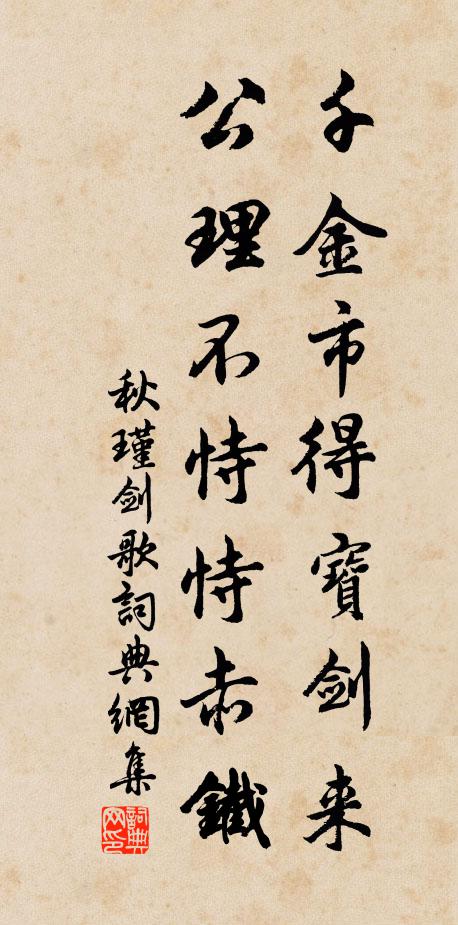 千金市得寶劍来
公理不恃恃赤鐵
秋瑾劍歌詞典網集
詞典網印